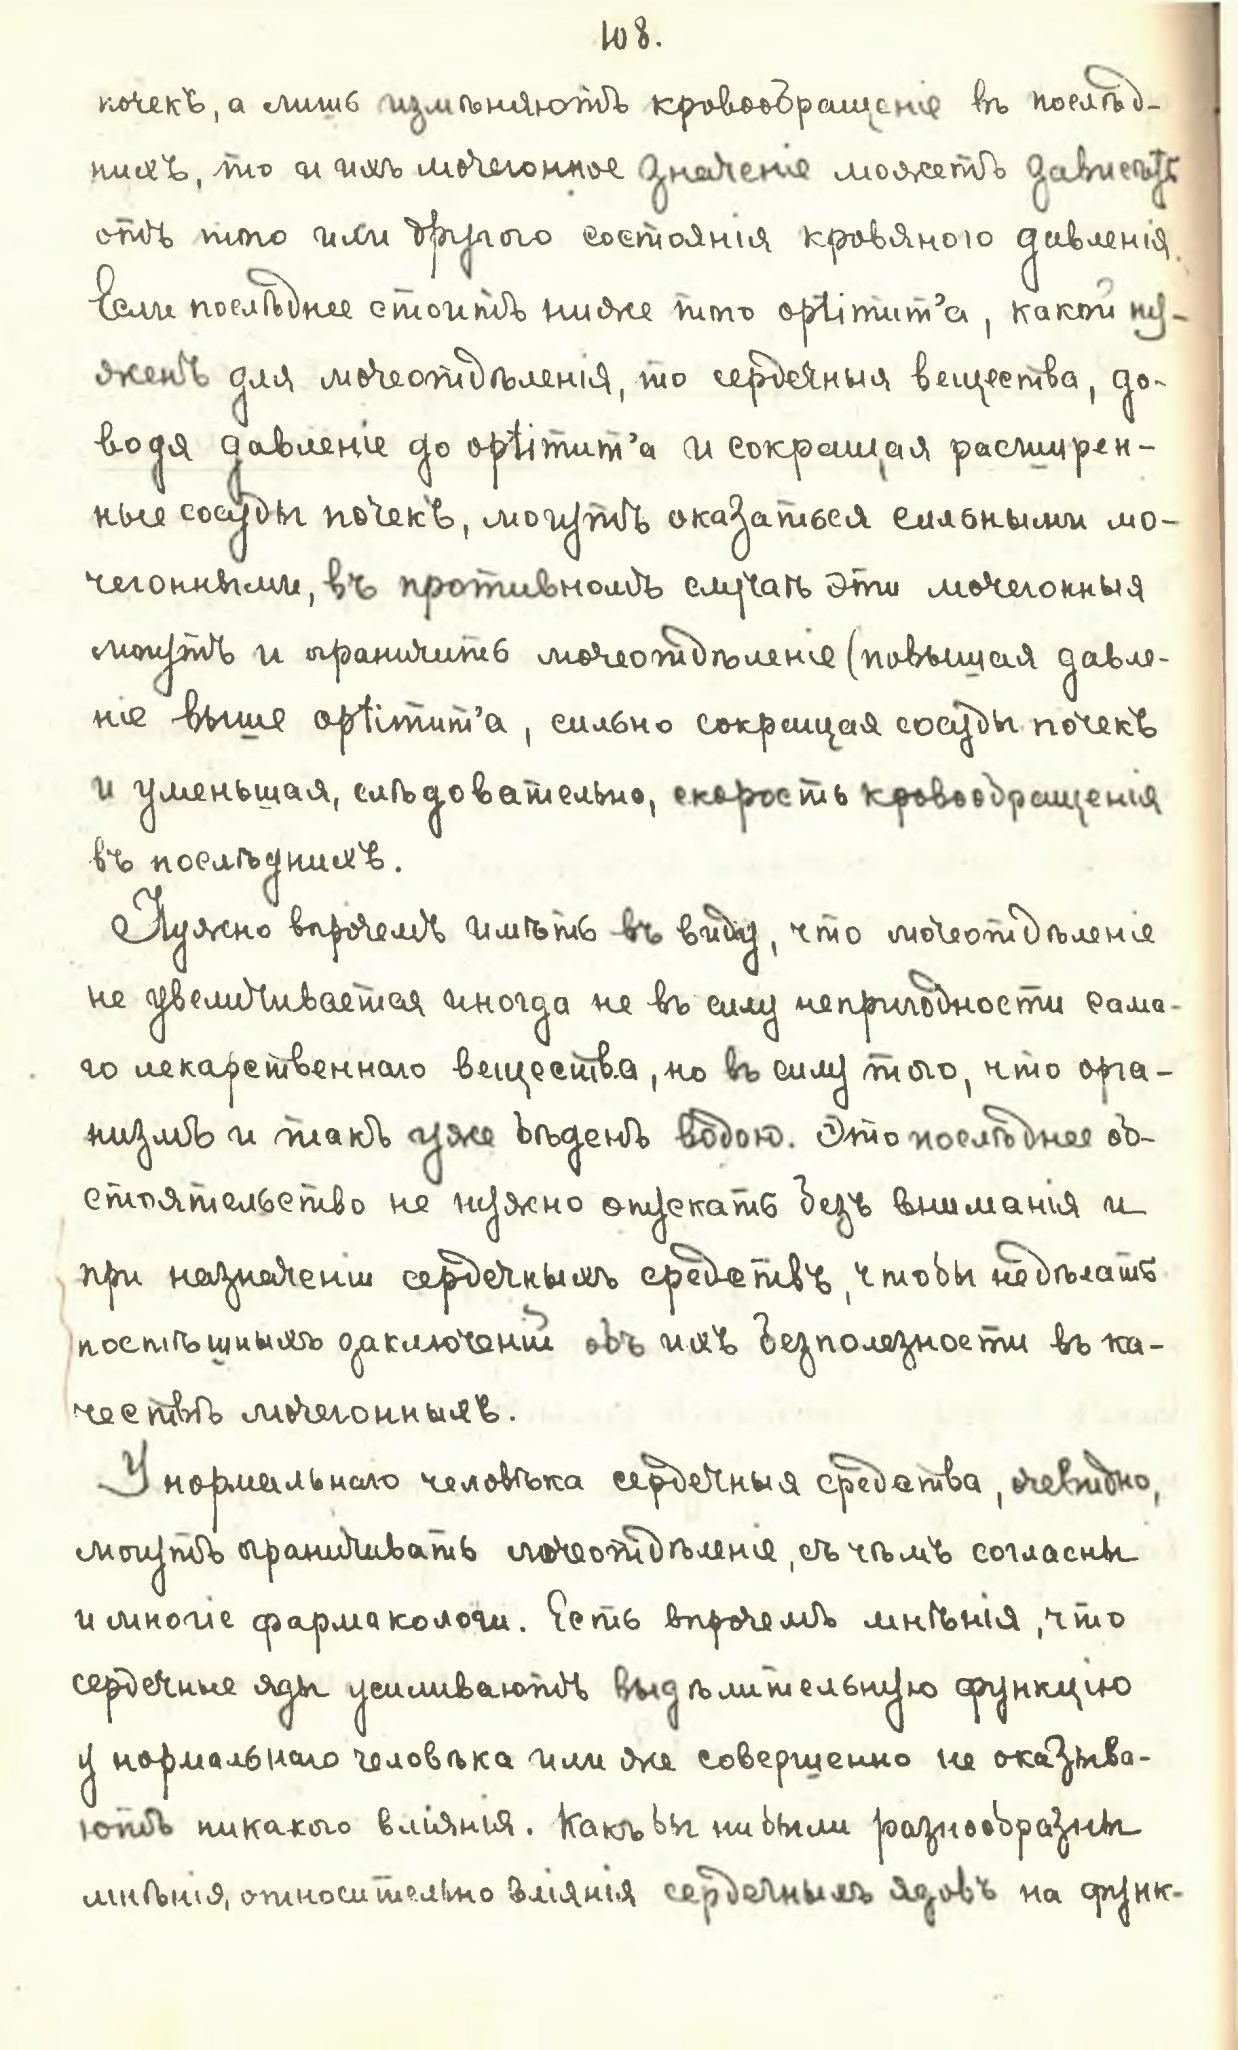 108.
почекъ, а лишь измѣняютъ кровообращеніе въ послѣд-
нихъ, то и ихъ мочегонное значеніе можетъ зависѣть
отъ того или другого состоянія кровяного давленія.
Если послѣднее стоитъ ниже того optimum'а, какой ну-
женъ для мочеотдѣленія, то сердечныя вещества, до-
водя давленіе до optimum'а и сокращая расширен-
ные сосуды почекъ, могутъ оказаться сильными мо-
чегонными, въ противномъ случаѣ эти мочегонныя
могутъ и ограничить мочеотдѣленіе (повышая давле-
ніе выше optimum'а, сильно сокращая сосуды почекъ
и уменьшая, слѣдовательно, скорость кровообращенія
въ послѣднихъ.
Нужно впрочемъ имѣть въ виду, что мочеотдѣленіе
не увеличивается иногда не въ силу непригодности сама-
го лекарственнаго вещества, но въ силу того, что орга-
низмъ и такъ уже бѣденъ водою. Это послѣднее об-
стоятельство не нужно опускать безъ вниманія и
при назначеніи сердечныхъ средствъ, чтобы не дѣлать
поспѣшныхъ заключеній объ ихъ безполезности въ ка-
чествѣ мочегонныхъ.
У нормальнаго человѣка сердечныя средства, очевидно,
могутъ ограничивать мочеотдѣленіе, съ чѣмъ согласны
и многіе фармакологи. Есть впрочемъ мнѣнія, что
сердечные яды усиливаютъ выдѣлительную функцію
у нормальнаго человѣка или же совершенно не оказыва-
ютъ никакого вліянія. Какъ бы ни были разнообразны
мнѣнія, относительно вліянія сердечныхъ ядовъ на функ-